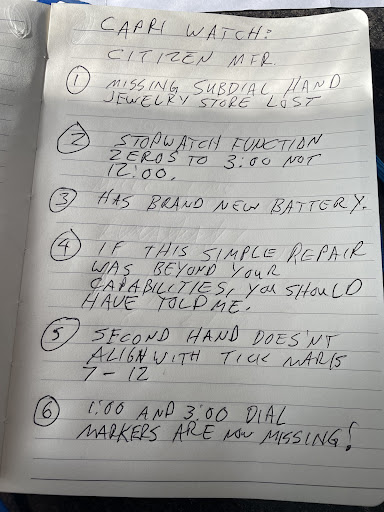 CAPRI WATCH:
CITIZEN MTR
① MISSING SUBDIAL HAND
JEWELRY STORE LOST
② STOPWATCH FUNCTION
ZEROS TO 3:00 NOT
12:00.
③ HAS BRAND NEW BATTERY.
④ IF THIS SIMPLE REPAIR
WAS BEYOND YOUR
CAPABILITIES, YOU SHOULD
HAVE TOLD ME.
⑤ SECOND HAND DOES'NT
ALIGN WITH TICK MARKS
7 - 12
⑥ 1:00 AND 3:00 DIAL
MARKERS ARE NOW MISSING!